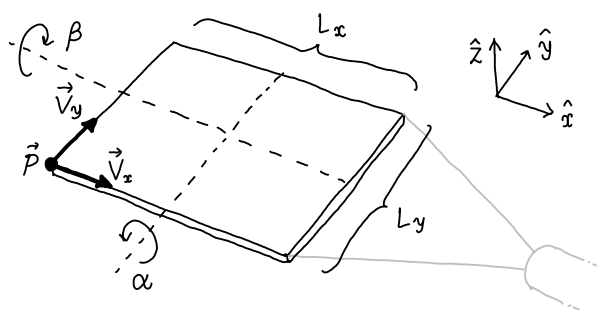 β
Lx
ẑ
ŷ
x̂
V⃗y
P⃗
V⃗x
Ly
α